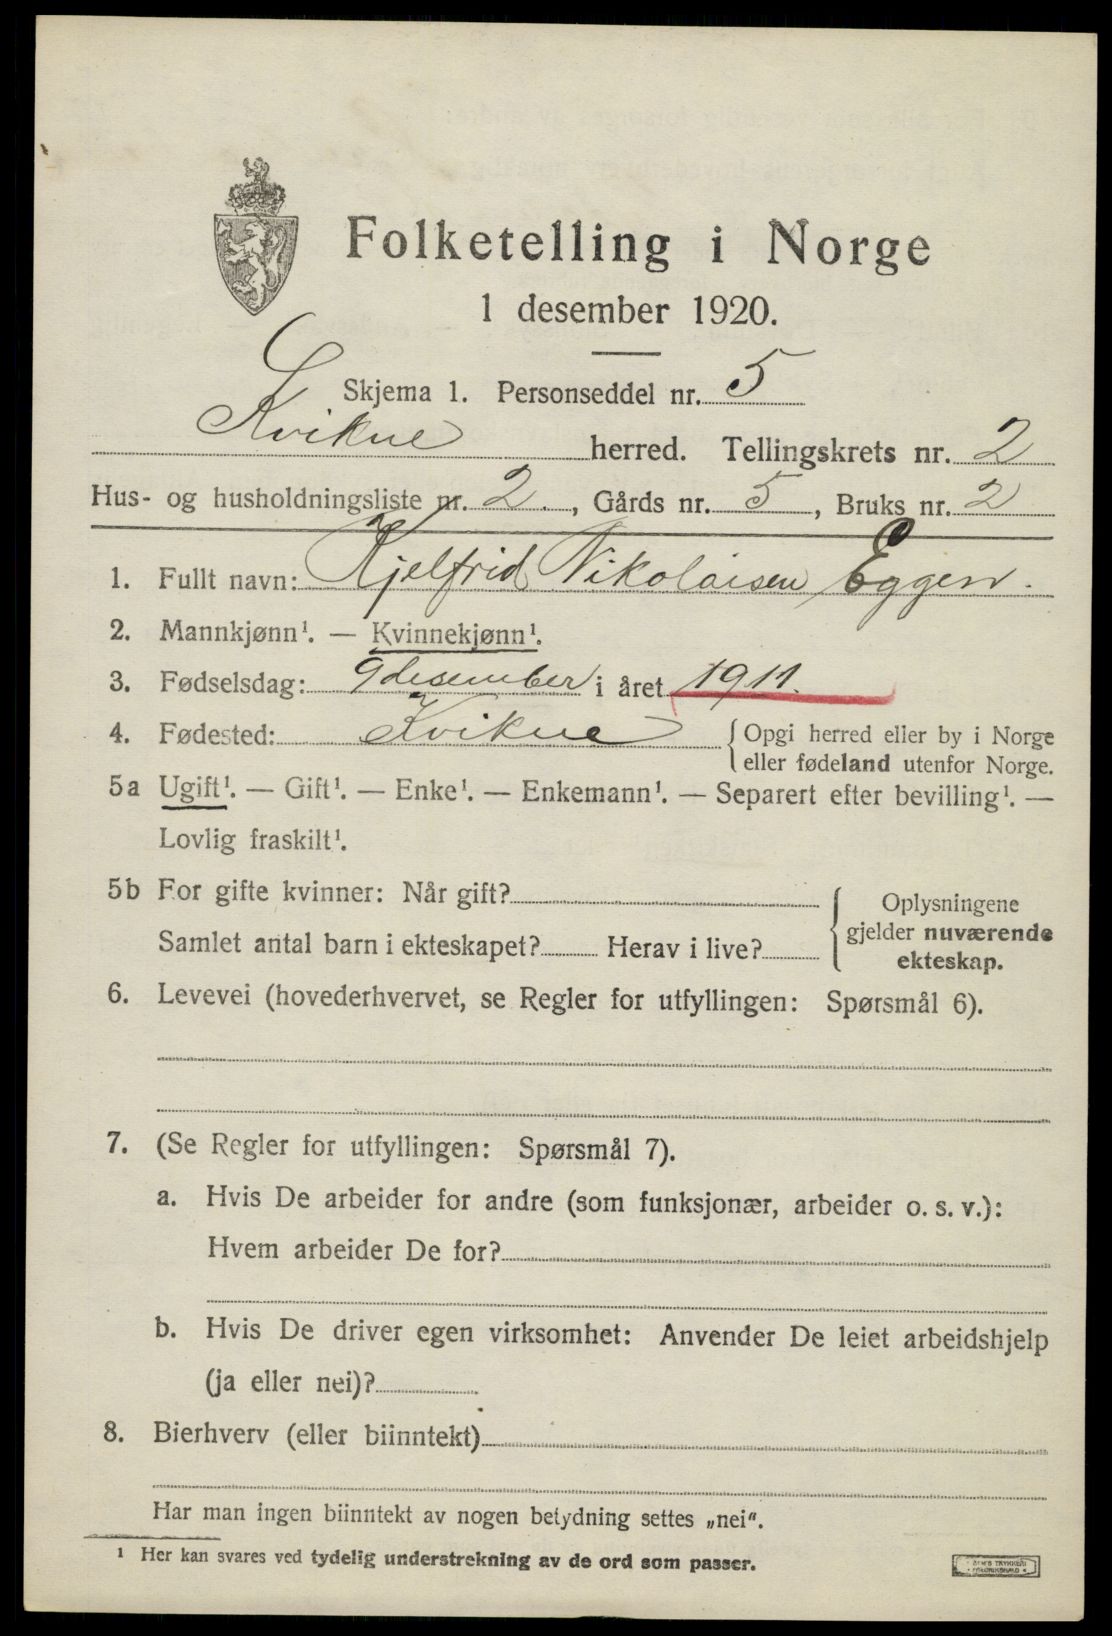 Folketelling i Norge
1 desember 1920.
Skjema 1. Personseddel nr. 5
Kvikne herred. Tellingskrets nr. 2
Hus- og husholdningsliste nr. 2., Gårds nr. 5, Bruks nr. 2
1. Fullt navn: Kjelfrid Nikolaisen Eggen.
2. Mannkjønn¹. — Kvinnekjønn¹.
3. Fødselsdag: 9 desember i året 1911.
4. Fødested: Kvikne { Opgi herred eller by i Norge
eller fødeland utenfor Norge.
5a Ugift¹. — Gift¹. — Enke¹. — Enkemann¹. — Separert efter bevilling¹. —
Lovlig fraskilt¹.
5b For gifte kvinner: Når gift?
Samlet antal barn i ekteskapet? Herav i live?
{ Oplysningene
gjelder nuværende
ekteskap.
6. Levevei (hovederhvervet, se Regler for utfyllingen: Spørsmål 6).
7. (Se Regler for utfyllingen: Spørsmål 7).
a. Hvis De arbeider for andre (som funksjonær, arbeider o. s. v.):
Hvem arbeider De for?
b. Hvis De driver egen virksomhet: Anvender De leiet arbeidshjelp
(ja eller nei)?
8. Bierhverv (eller biinntekt)
Har man ingen biinntekt av nogen betydning settes „nei“.
¹ Her kan svares ved tydelig understrekning av de ord som passer.